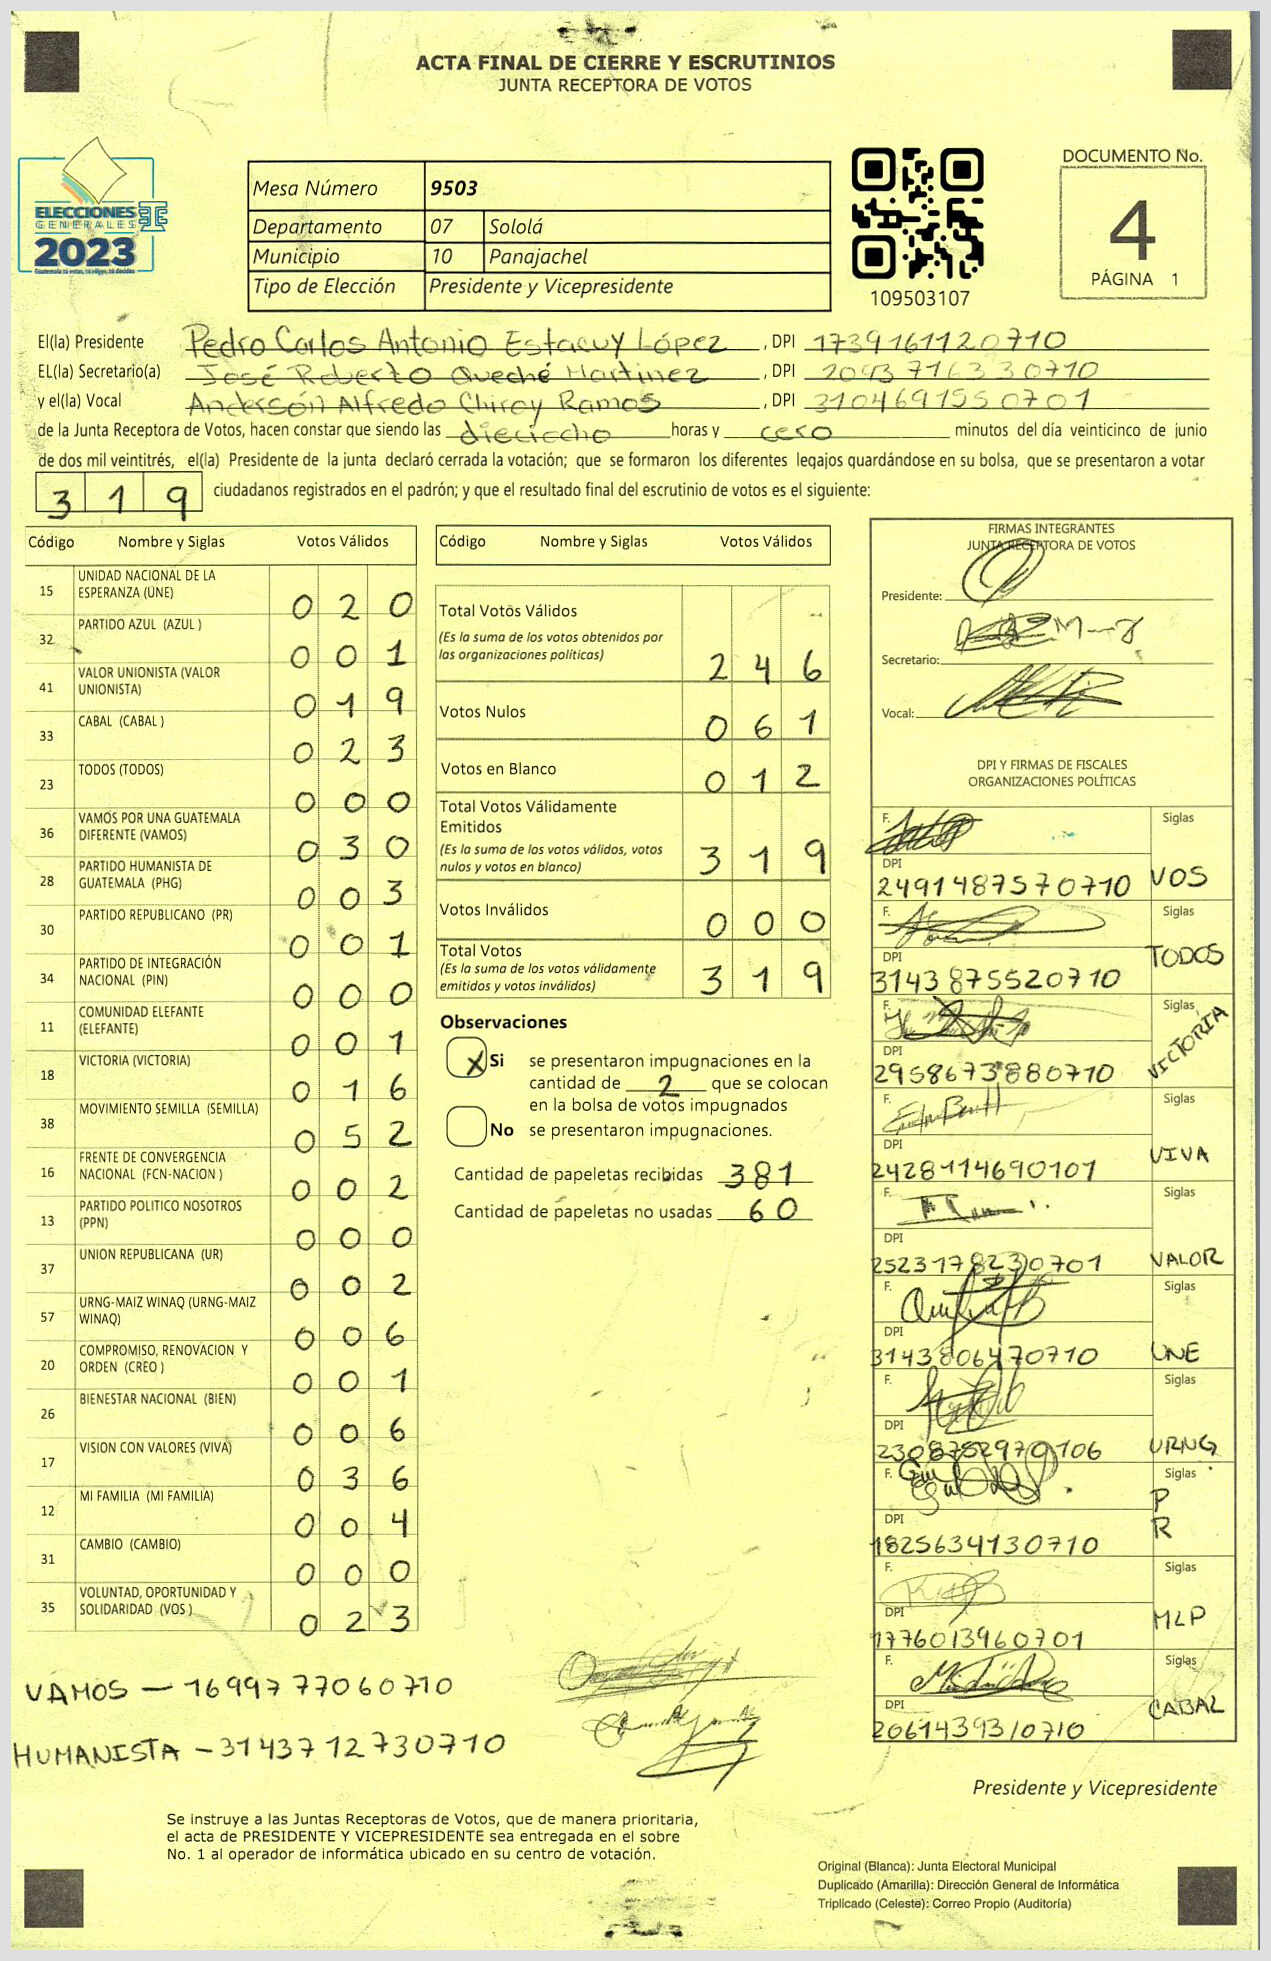 ACTA FINAL DE CIERRE Y ESCRUTINIOS
JUNTA RECEPTORA DE VOTOS
ELECCIONES
GENERALES
2023
Mesa Número 9503
Departamento 07 Sololá
Municipio 10 Panajachel
Tipo de Elección Presidente y Vicepresidente
109503107
DOCUMENTO No.
4
PÁGINA 1
El(la) Presidente Pedro Carlos Antonio Estacuy López, DPI 1739161120710
EL(la) Secretario(a) José Roberto Queché Martinez, DPI 2093716330710
y el(la) Vocal Anderson Alfredo Chiroy Ramos, DPI 3104691550701
de la Junta Receptora de Votos, hacen constar que siendo las dieciocho horas y cero minutos del día veinticinco de junio
de dos mil veintitrés, el(la) Presidente de la junta declaró cerrada la votación; que se formaron los diferentes legajos quardándose en su bolsa, que se presentaron a votar
319 ciudadanos registrados en el padrón; y que el resultado final del escrutinio de votos es el siguiente:
Código Nombre y Siglas Votos Válidos
15 UNIDAD NACIONAL DE LA ESPERANZA (UNE) 020
32 PARTIDO AZUL (AZUL ) 001
41 VALOR UNIONISTA (VALOR UNIONISTA) 019
33 CABAL (CABAL ) 023
23 TODOS (TODOS) 000
36 VAMOS POR UNA GUATEMALA DIFERENTE (VAMOS) 030
28 PARTIDO HUMANISTA DE GUATEMALA (PHG) 003
30 PARTIDO REPUBLICANO (PR) 001
34 PARTIDO DE INTEGRACIÓN NACIONAL (PIN) 000
11 COMUNIDAD ELEFANTE (ELEFANTE) 001
18 VICTORIA (VICTORIA) 016
38 MOVIMIENTO SEMILLA (SEMILLA) 052
16 FRENTE DE CONVERGENCIA NACIONAL (FCN-NACION ) 002
13 PARTIDO POLITICO NOSOTROS (PPN) 000
37 UNION REPUBLICANA (UR) 002
57 URNG-MAIZ WINAQ (URNG-MAIZ WINAQ) 006
20 COMPROMISO, RENOVACION Y ORDEN (CREO ) 001
26 BIENESTAR NACIONAL (BIEN) 006
17 VISION CON VALORES (VIVA) 036
12 MI FAMILIA (MI FAMILIA) 004
31 CAMBIO (CAMBIO) 000
35 VOLUNTAD, OPORTUNIDAD Y SOLIDARIDAD (VOS ) 023
VAMOS - 1699777060710
HUMANISTA - 3143712730710
Código Nombre y Siglas Votos Válidos
Total Votos Válidos 246
(Es la suma de los votos obtenidos por
las organizaciones políticas)
Votos Nulos 061
Votos en Blanco 012
Total Votos Válidamente
Emitidos 319
(Es la suma de los votos válidos, votos
nulos y votos en blanco)
Votos Inválidos 000
Total Votos 319
(Es la suma de los votos válidamente
emitidos y votos inválidos)
Observaciones
X Si se presentaron impugnaciones en la
cantidad de 2 que se colocan
en la bolsa de votos impugnados
No se presentaron impugnaciones.
Cantidad de papeletas recibidas 381
Cantidad de papeletas no usadas 60
FIRMAS INTEGRANTES
JUNTA RECEPTORA DE VOTOS
Presidente:
Secretario:
Vocal:
DPI Y FIRMAS DE FISCALES
ORGANIZACIONES POLÍTICAS
F. Siglas
DPI
2491487570710 VOS
F. Siglas
DPI
3143875520710 TODOS
F. Siglas
DPI
2958673880710 VICTORIA
F. Siglas
DPI
2428114690101 VIVA
F. Siglas
DPI
2523178230701 VALOR
F. Siglas
DPI
3143806470710 UNE
F. Siglas
DPI
2308782970106 URNG
F. Siglas
DPI
1825634130710 PR
F. Siglas
DPI
1776013960701 MLP
F. Siglas
DPI
2061439310710 CABAL
Presidente y Vicepresidente
Se instruye a las Juntas Receptoras de Votos, que de manera prioritaria,
el acta de PRESIDENTE Y VICEPRESIDENTE sea entregada en el sobre
No. 1 al operador de informática ubicado en su centro de votación.
Original (Blanca): Junta Electoral Municipal
Duplicado (Amarilla): Dirección General de Informática
Triplicado (Celeste): Correo Propio (Auditoría)